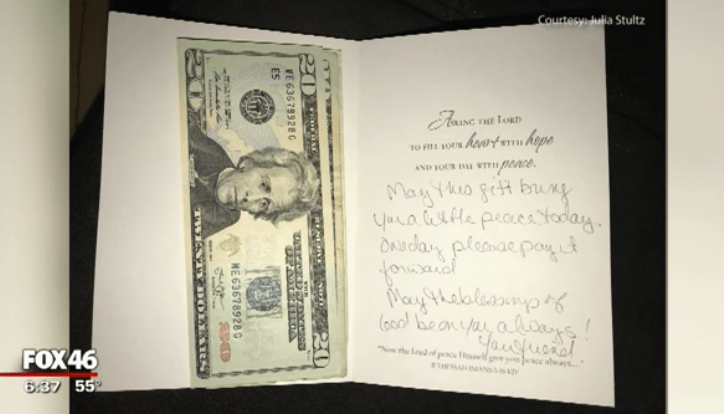 Courtesy: Julia Stultz
20
20
ME63678928G
E5
THE UNITED STATES
OF AMERICA
ME63678928G
TWENTY DOLLARS
20
20
ASKING THE LORD
TO FILL YOUR heart WITH hope
AND YOUR DAY WITH peace.
May this gift bring
you a little peace today.
One day please pay it
forward
May the blessings of
God be on you always!
Your friend
"Now the Lord of peace Himself give you peace always..."
II THESSALONIANS 3:16 KJV
FOX 46
6:37 55°